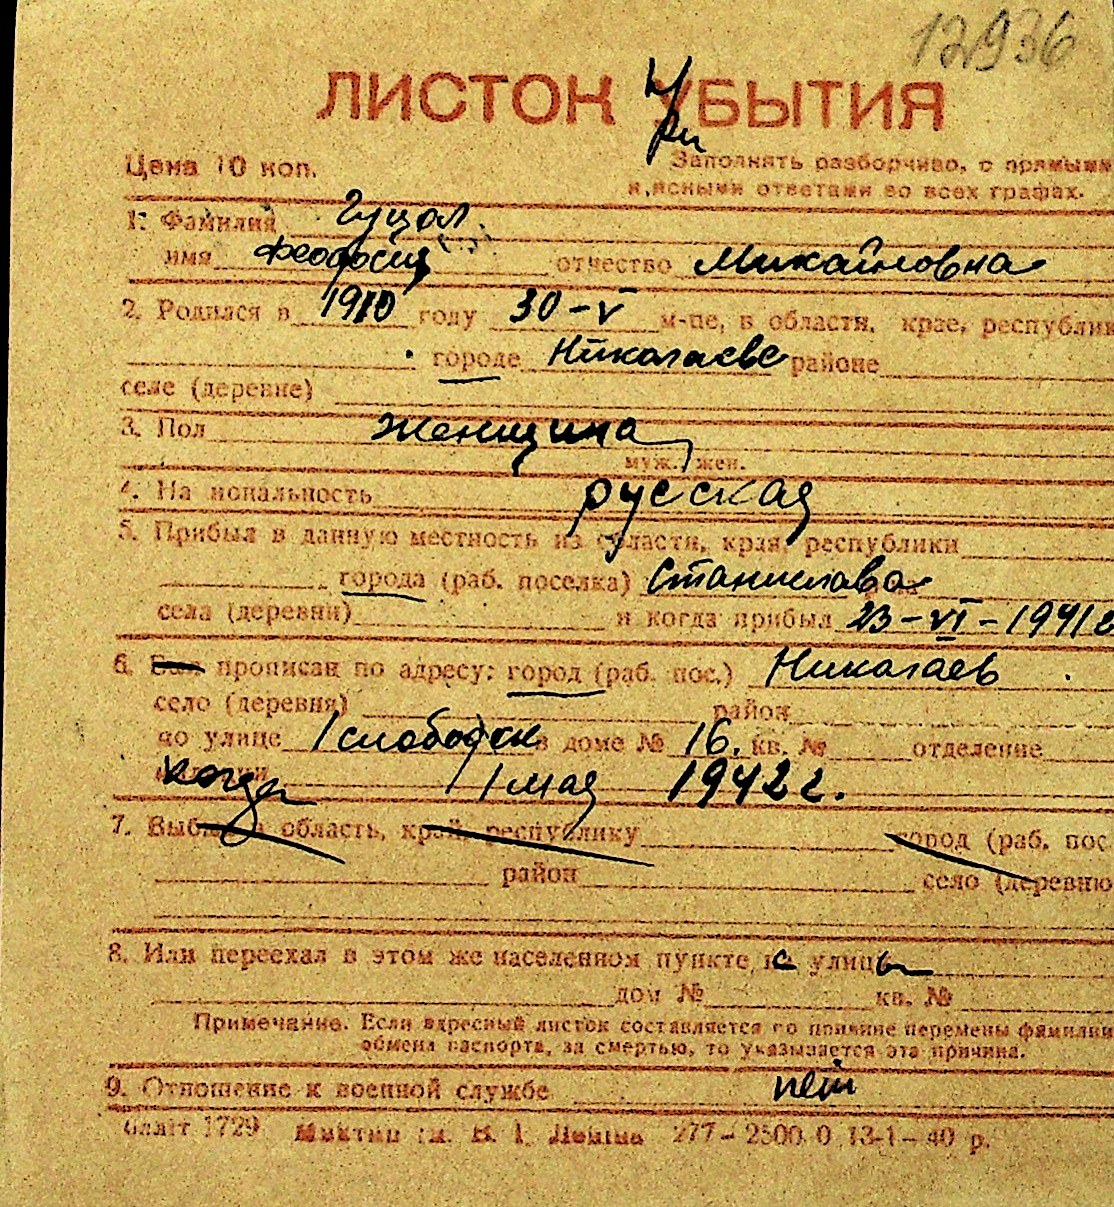 12936
ЛИСТОК УБЫТИЯ
При
Цена 10 коп.
Заполнять разборчиво, с прямыми
и ясными ответами во всех графах.
1. Фамилия Гуцол
имя Феодосия отчество Михайловна
2. Родился в 1910 году 30-V м-це, в области, крае, республик
городе Николаеве районе
селе (деревне)
3. Пол женщина
муж., жен.
4. Национальность русская
5. Прибыл в данную местность из области, края, республики
города (раб. поселка) Станислава
села (деревни) и когда прибыл 23-VI-1941г
6. Был прописан по адресу: город (раб. пос.) Николаев
село (деревня) район
по улице 1 слободск в доме № 16. кв. № отделение
милиции когда 1 мая 1942 г.
7. Выбыл в область, край, республику город (раб. пос
район село (деревню
8. Или переехал в этом же населенном пункте, с улицы
дом № кв. №
Примечание. Если адресный листок составляется по причине перемены фамилии
обмена паспорта, за смертью, то указывается эта причина.
9. Отношение к военной службе нет
1729 Ленина 277-2500 0 13-1-40 р.